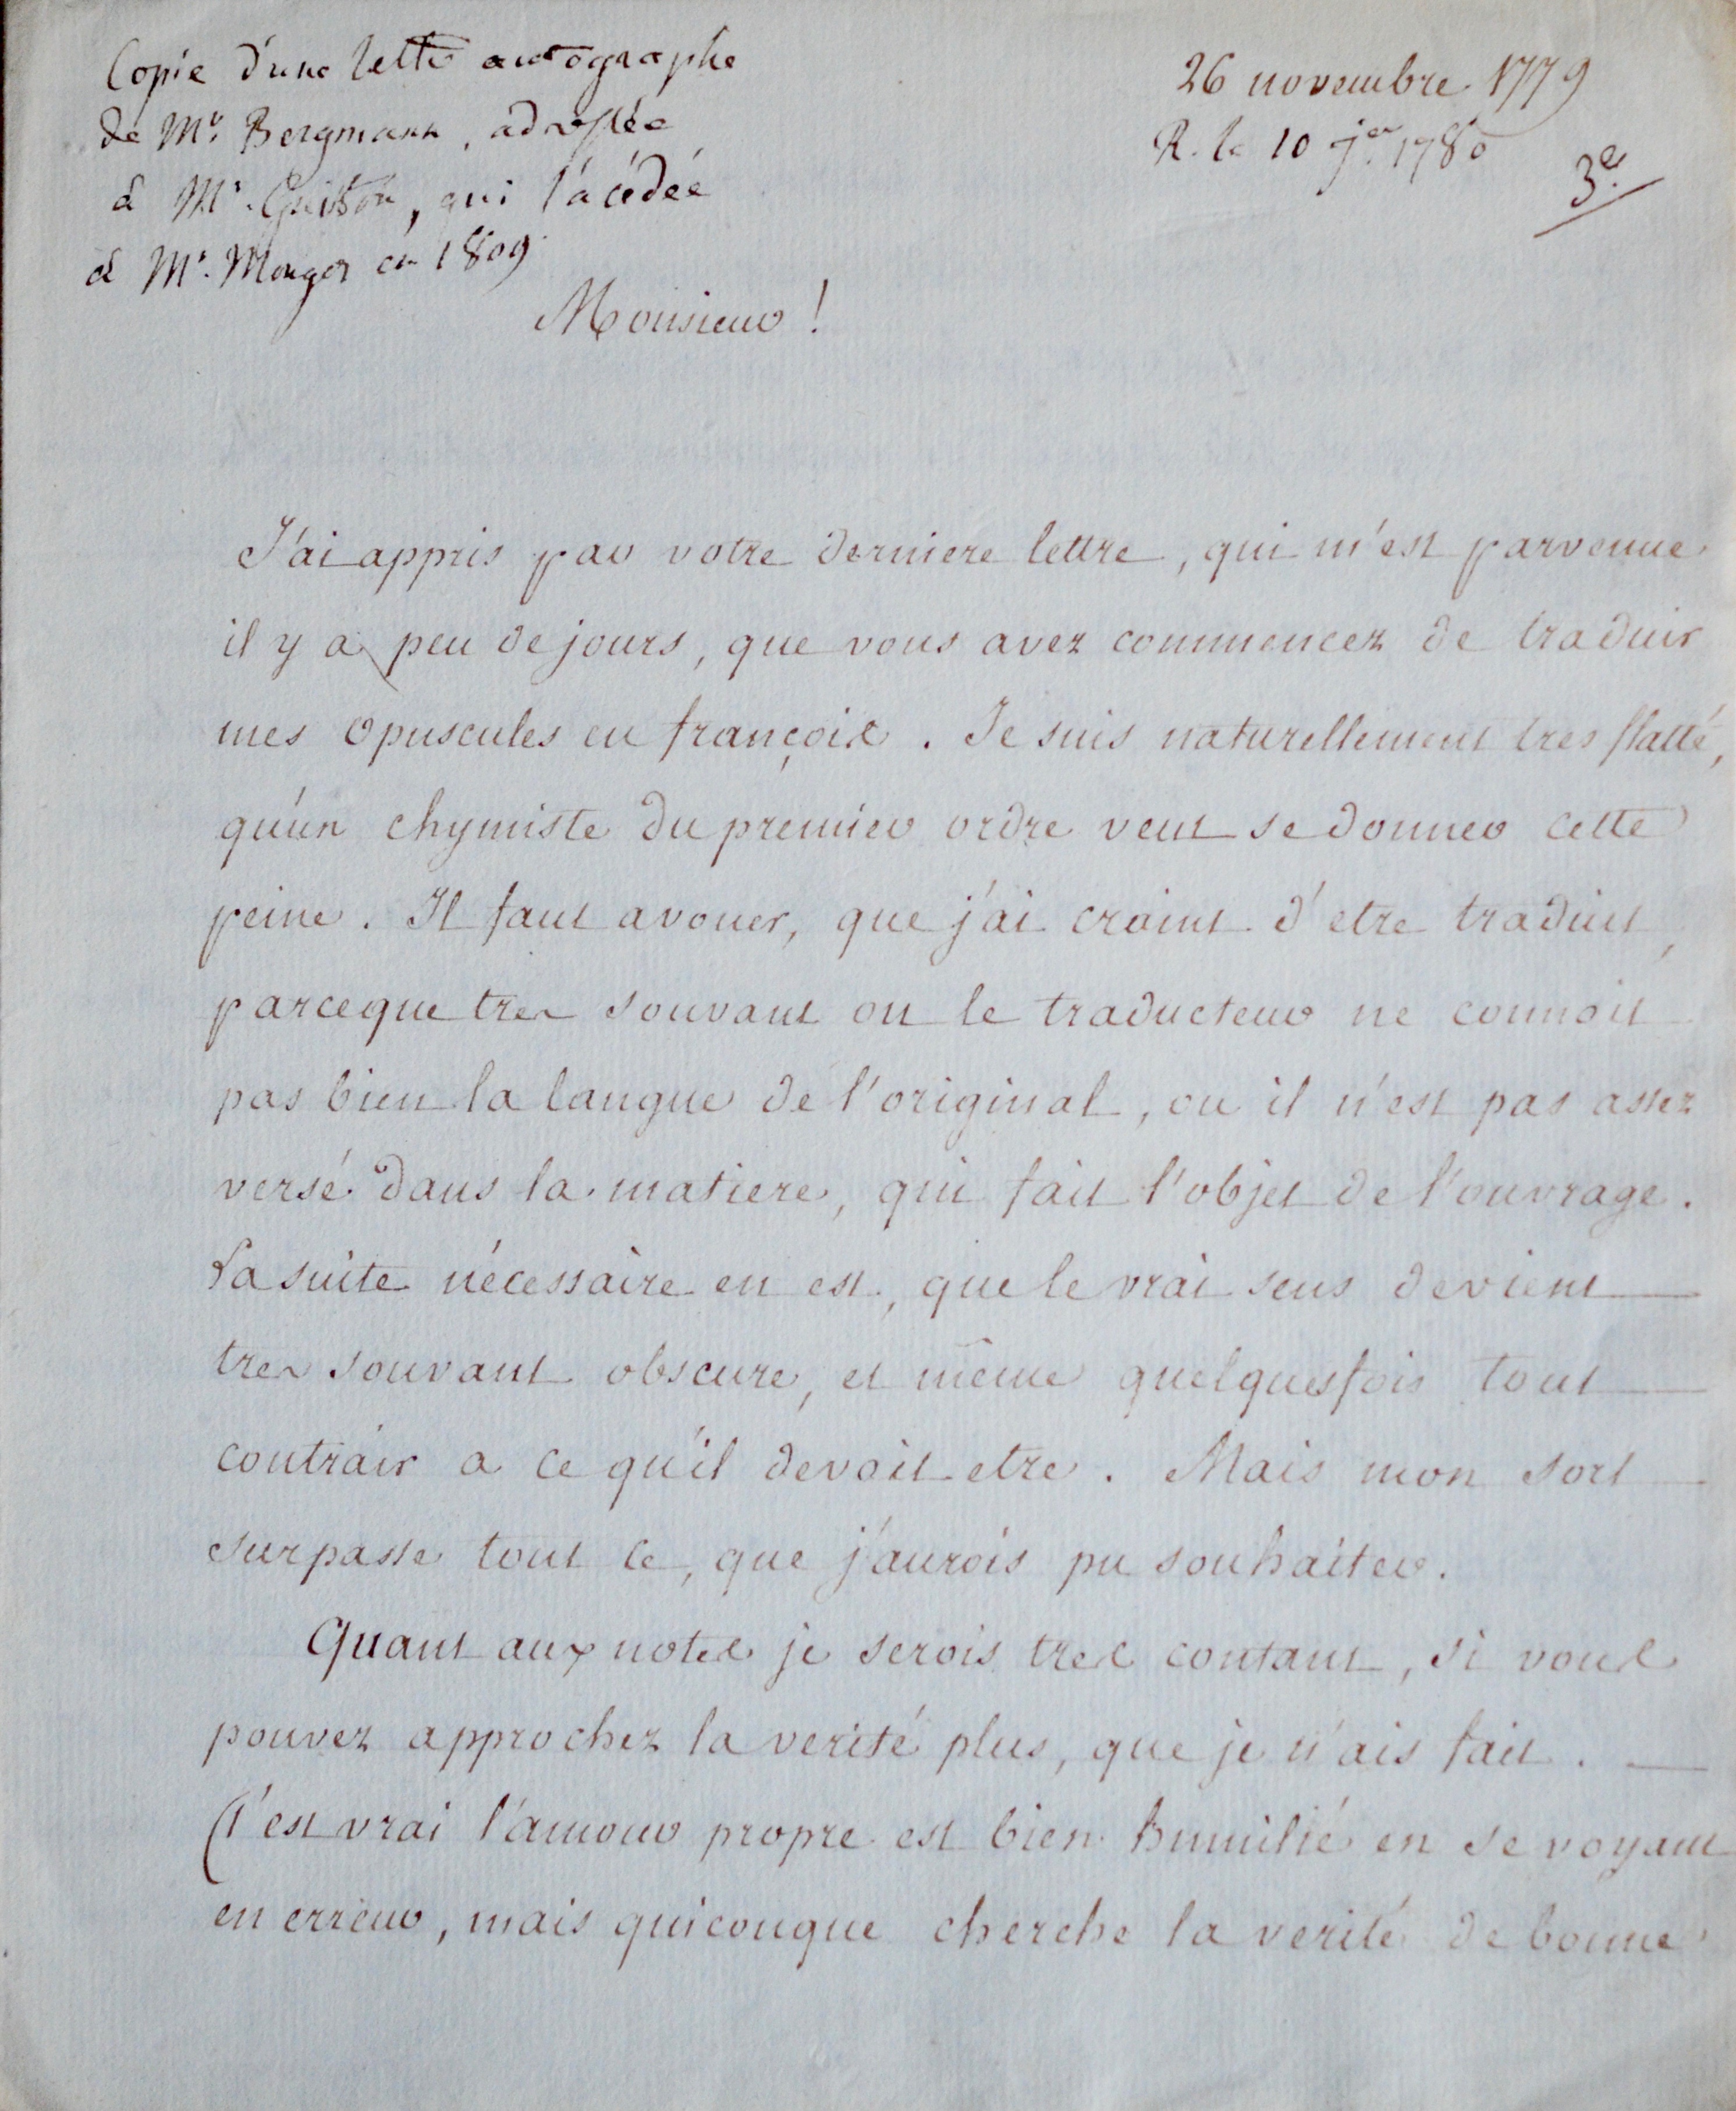 Copie d'une lettre autographe
de Mr. Bergmann, adressée
à Mr. Guiton, qui l'a cédée
à Mr. Monges en 1809
26 novembre 1779
R. le 10 jer. 1780
3e.
Monsieur !
J'ai appris par votre derniere lettre, qui m'est parvenue
il y a peu de jours, que vous avez commencez de traduir
mes opuscules en françois. Je suis naturellement tres flatté,
qu'un chymiste du premier ordre veut se donner cette
peine. Il faut avouer, que j'ai craint d'etre traduit,
parceque tres souvant ou le traducteur ne connoit
pas bien la langue de l'original, ou il n'est pas assez
versé dans la matiere, qui fait l'objet de l'ouvrage.
La suite nécessaire en est, que le vrai sens devient
tres souvant obscure, et même quelquesfois tout
contrair a ce qu'il devoit etre. Mais mon sort
surpasse tout ce, que j'aurois pu souhaiter.
Quant aux notes je serois tres contant, si vous
pouvez approchez la verité plus, que je n'ais fait.
C'est vrai l'amour propre est bien humilié en se voyant
en erreur, mais quiconque cherche la verité de bonne